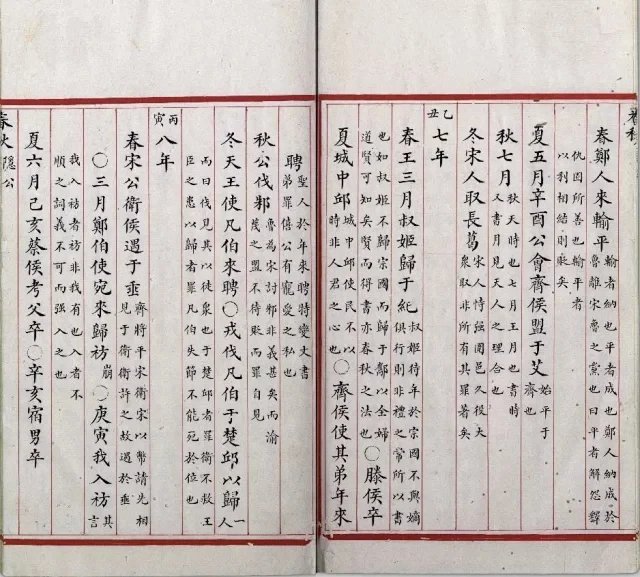 春鄭人來輸平 輸者納也平者成也鄭人納成於
魯離宋魯之黨也曰平者解怨釋
仇固所善也輸平者
以利相結則貶矣
夏五月辛酉公會齊侯盟于艾 始平于
齊也
秋七月 秋天時也七月王月也書時
人書月見天人之理合也
冬宋人取長葛 宋人恃强圍邑久役大
衆取非所有其罪著矣
乙丑 七年
春王三月叔姬歸于紀 叔姬待年於宗國不與嫡
俱行則非禮之常所以書
也如叔姬不歸宗國而歸于酅以全婦
道賢可知矣賢而得書亦春秋之法也 〇滕侯卒
夏城中邱 城中邱使民不以
時非人君之心也 〇齊侯使其弟年來
聘 聖人於年來聘特變文書
弟罪僖公有寵愛之私也
秋公伐邾 魯為宋討邾非義甚矣而渝
蔑之盟不待貶而罪自見
冬天王使凡伯來聘〇戎伐凡伯于楚邱以歸 一
人
而曰伐見其以徒衆也于楚邱者罪衛不救王
臣之患以歸者罪凡伯失節不能死於位也
丙寅 八年
春宋公衛侯遇于垂 齊將平宋衛宋以幣請先相
見于衛衛許之故遇於垂
〇三月鄭伯使宛來歸祊 崩 〇庚寅我入祊 其
言
我入祊者祊非我有也入者不
順之詞義不可而强入之也
夏六月己亥蔡侯考父卒〇辛亥宿男卒
春秋 隱公